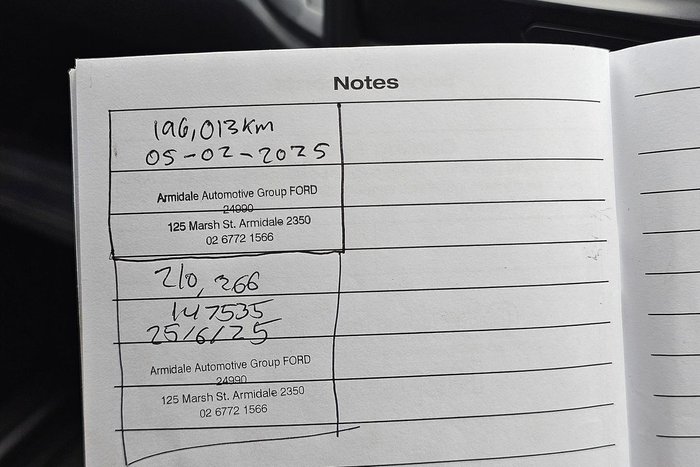 Notes
196,013km
05-02-2025
Armidale Automotive Group FORD
24990
125 Marsh St. Armidale 2350
02 6772 1566
210,266
147535
25/6/25
Armidale Automotive Group FORD
24990
125 Marsh St. Armidale 2350
02 6772 1566